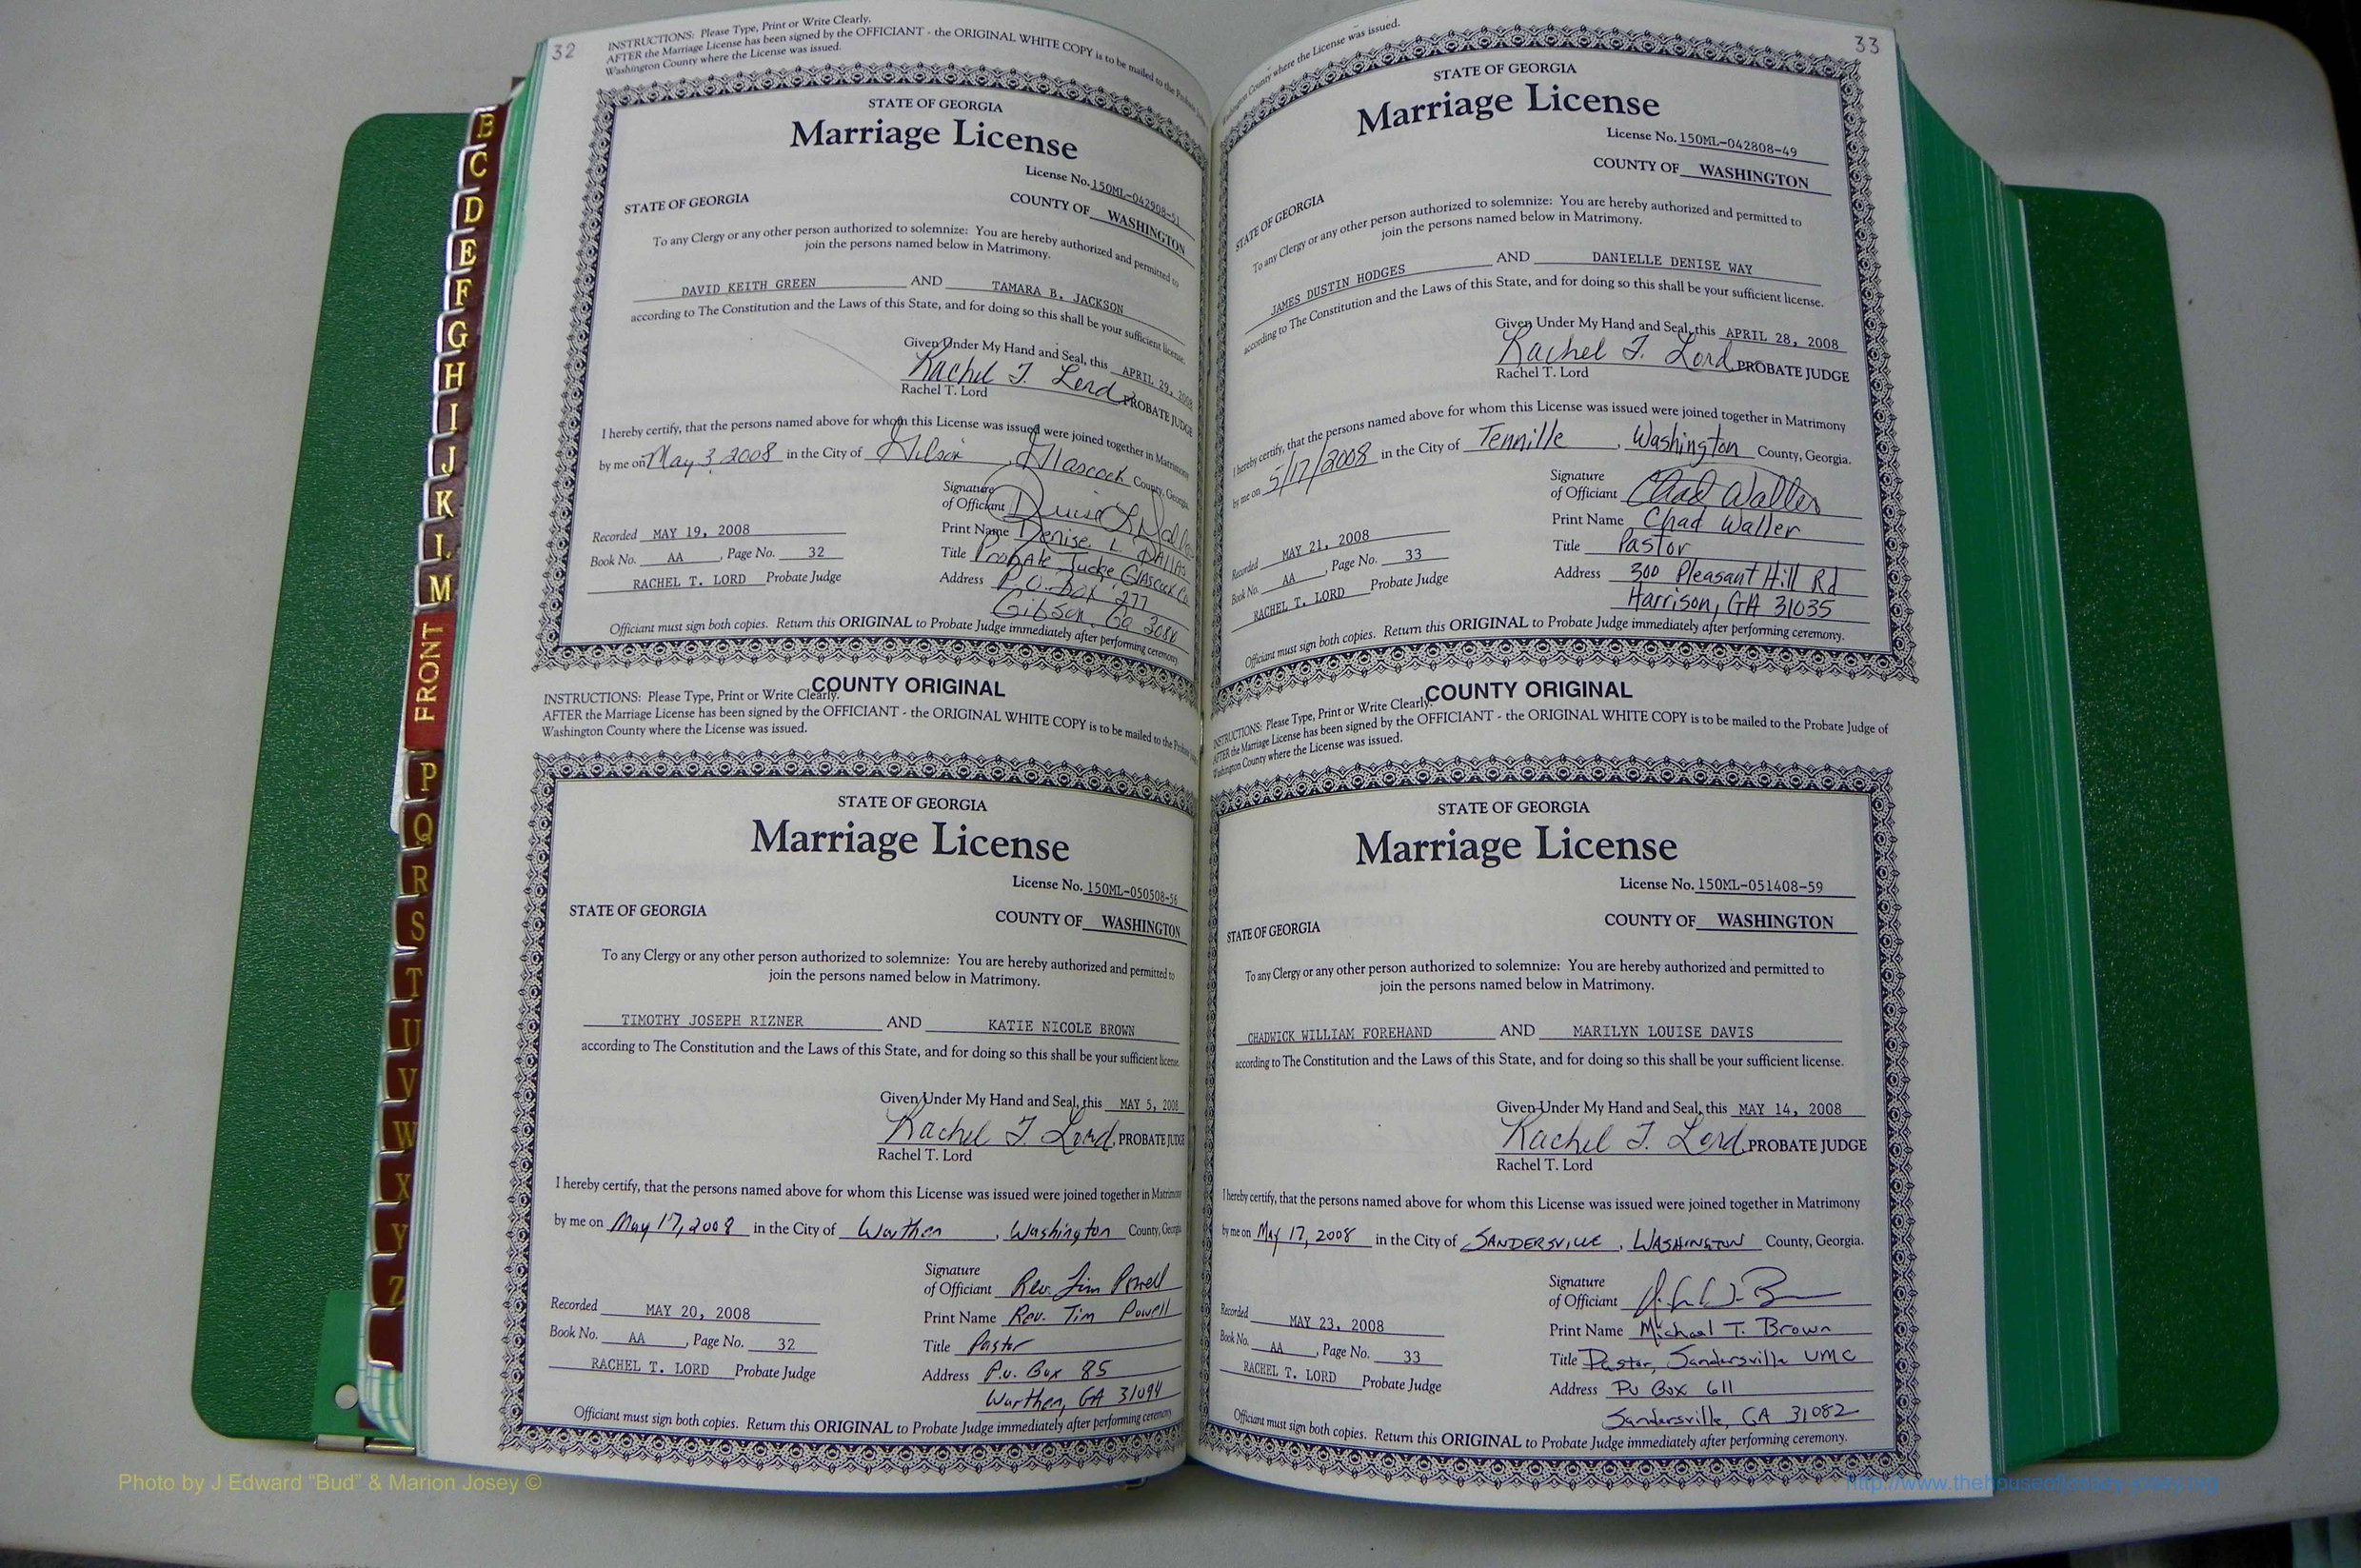 32
INSTRUCTIONS: Please Type, Print or Write Clearly.
AFTER the Marriage License has been signed by the OFFICIANT - the ORIGINAL WHITE COPY is to be mailed to the Probate
Washington County where the License was issued.
STATE OF GEORGIA
Marriage License
License No. 150ML-042908-51
STATE OF GEORGIA COUNTY OF WASHINGTON
To any Clergy or any other person authorized to solemnize: You are hereby authorized and permitted to
join the persons named below in Matrimony.
DAVID KEITH GREEN AND TAMARA B. JACKSON
according to The Constitution and the Laws of this State, and for doing so this shall be your sufficient license.
Given Under My Hand and Seal, this APRIL 29, 2008
Rachel T. Lord PROBATE JUDGE
Rachel T. Lord
I hereby certify, that the persons named above for whom this License was issued were joined together in Matrimony
by me on May 3, 2008 in the City of Gibson, Glascock County, Georgia.
Signature
of Officiant Denise L Dallas
Recorded MAY 19, 2008 Print Name Denise L DALLAS
Book No. AA, Page No. 32 Title Probate Judge Glascock Co.
RACHEL T. LORD Probate Judge Address P.O. Box 277
Gibson, Ga
Officiant must sign both copies. Return this ORIGINAL to Probate Judge immediately after performing ceremony
COUNTY ORIGINAL
INSTRUCTIONS: Please Type, Print or Write Clearly.
AFTER the Marriage License has been signed by the OFFICIANT - the ORIGINAL WHITE COPY is to be mailed to the Probate
Washington County where the License was issued.
STATE OF GEORGIA
Marriage License
License No. 150ML-050508-56
STATE OF GEORGIA COUNTY OF WASHINGTON
To any Clergy or any other person authorized to solemnize: You are hereby authorized and permitted to
join the persons named below in Matrimony.
TIMOTHY JOSEPH RIZNER AND KATIE NICOLE BROWN
according to The Constitution and the Laws of this State, and for doing so this shall be your sufficient license.
Given Under My Hand and Seal, this MAY 5, 2008
Rachel T. Lord, PROBATE JUDGE
Rachel T. Lord
I hereby certify, that the persons named above for whom this License was issued were joined together in Matrimony
by me on May 17, 2008 in the City of Warthen, Washington County, Georgia
Signature
of Officiant Rev. Tim Powell
Recorded MAY 20, 2008 Print Name Rev. Tim Powell
Book No. AA, Page No. 32 Title Pastor
RACHEL T. LORD Probate Judge Address P.O. Box 85
Warthen, GA 31094
Officiant must sign both copies. Return this ORIGINAL to Probate Judge immediately after performing ceremony.
33
Washington County where the License was issued.
STATE OF GEORGIA
Marriage License
License No. 150ML-042808-49
STATE OF GEORGIA COUNTY OF WASHINGTON
To any Clergy or any other person authorized to solemnize: You are hereby authorized and permitted to
join the persons named below in Matrimony.
JAMES DUSTIN HODGES AND DANIELLE DENISE WAY
according to The Constitution and the Laws of this State, and for doing so this shall be your sufficient license.
Given Under My Hand and Seal, this APRIL 28, 2008
Rachel T. Lord, PROBATE JUDGE
Rachel T. Lord
I hereby certify, that the persons named above for whom this License was issued were joined together in Matrimony
by me on 5/17/2008 in the City of Tennille, Washington County, Georgia.
Signature
of Officiant Chad Waller
Recorded MAY 21, 2008 Print Name Chad Waller
Book No. AA, Page No. 33 Title Pastor
RACHEL T. LORD Probate Judge Address 300 Pleasant Hill Rd
Harrison, GA 31035
Officiant must sign both copies. Return this ORIGINAL to Probate Judge immediately after performing ceremony.
COUNTY ORIGINAL
INSTRUCTIONS: Please Type, Print or Write Clearly.
AFTER the Marriage License has been signed by the OFFICIANT - the ORIGINAL WHITE COPY is to be mailed to the Probate Judge of
Washington County where the License was issued.
STATE OF GEORGIA
Marriage License
License No. 150ML-051408-59
STATE OF GEORGIA COUNTY OF WASHINGTON
To any Clergy or any other person authorized to solemnize: You are hereby authorized and permitted to
join the persons named below in Matrimony.
CHADWICK WILLIAM FOREHAND AND MARILYN LOUISE DAVIS
according to The Constitution and the Laws of this State, and for doing so this shall be your sufficient license.
Given Under My Hand and Seal, this MAY 14, 2008
Rachel T. Lord, PROBATE JUDGE
Rachel T. Lord
I hereby certify, that the persons named above for whom this License was issued were joined together in Matrimony
by me on May 17, 2008 in the City of SANDERSVILLE, WASHINGTON County, Georgia.
Signature
of Officiant
Recorded MAY 23, 2008 Print Name Michael T. Brown
Book No. AA, Page No. 33 Title Pastor, Sandersville UMC
RACHEL T. LORD Probate Judge Address PO Box 611
Sandersville, GA 31082
Officiant must sign both copies. Return this ORIGINAL to Probate Judge immediately after performing ceremony.
B
C
D
E
F
G
H
I
J
K
L
M
FRONT
P
Q
R
S
T
U
V
W
X
Y
Z
Photo by J Edward “Bud” & Marion Josey ©
http://www.thehouseofjosey-josey.org